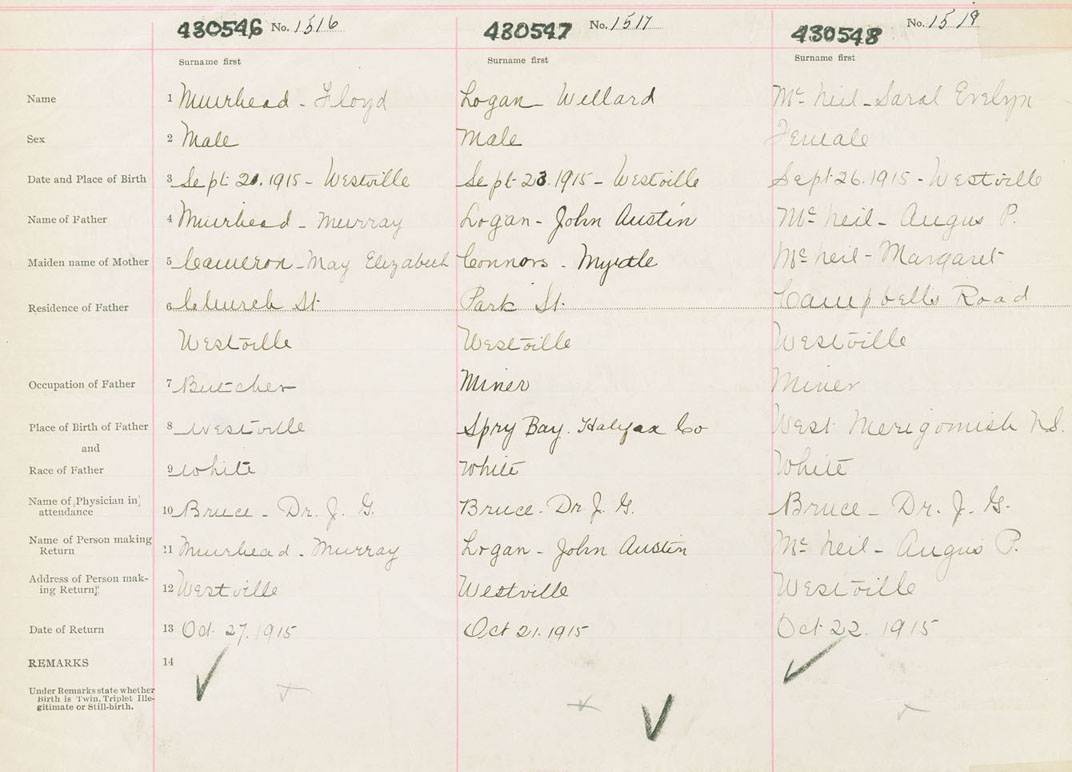 430546 No. 1516 430547 No. 1517 430548 No. 1519
Surname first Surname first Surname first
Name 1 Muirhead - Floyd Logan - Willard McNeil - Saral Evelyn
Sex 2 Male Male Female
Date and Place of Birth 3 Sept. 21. 1915 - Westville Sept. 23. 1915 - Westville Sept 26. 1915 - Westville
Name of Father 4 Muirhead - Murray Logan - John Austin McNeil - Angus P.
Maiden name of Mother 5 Cameron - May Elizabeth Connors - Myrtle McNeil - Margaret
Residence of Father 6 Church St Park St. Campbells Road
Westville Westville Westville
Occupation of Father 7 Butcher Miner Miner
Place of Birth of Father 8 Westville Spry Bay. Halifax Co West Merigomish N.S.
and
Race of Father 9 White White White
Name of Physician in
attendance 10 Bruce - Dr. J. G. Bruce. Dr J. G. Bruce - Dr. J. G.
Name of Person making
Return 11 Muirhead - Murray Logan - John Austin McNeil - Angus P.
Address of Person mak-
ing Return 12 Westville Westville Westville
Date of Return 13 Oct. 27. 1915 Oct 21. 1915 Oct 22. 1915
REMARKS 14
Under Remarks state whether
Birth is Twin, Triplet Ille-
gitimate or Still-birth.